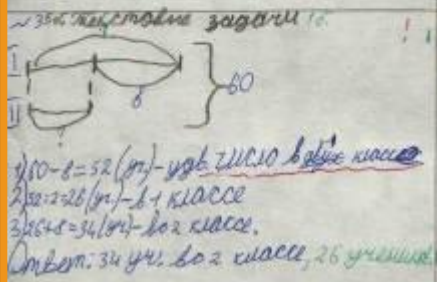 ~35б текстовые задачи 1б. !
I
} 60
8
II
?
1) 60-8=52 (уч)- удв. число в двух классах
2) 52:2=26 (уч)- в 1 классе
3) 26+8=34 (уч)- во 2 классе.
Ответ: 34 уч. во 2 классе, 26 учеников.